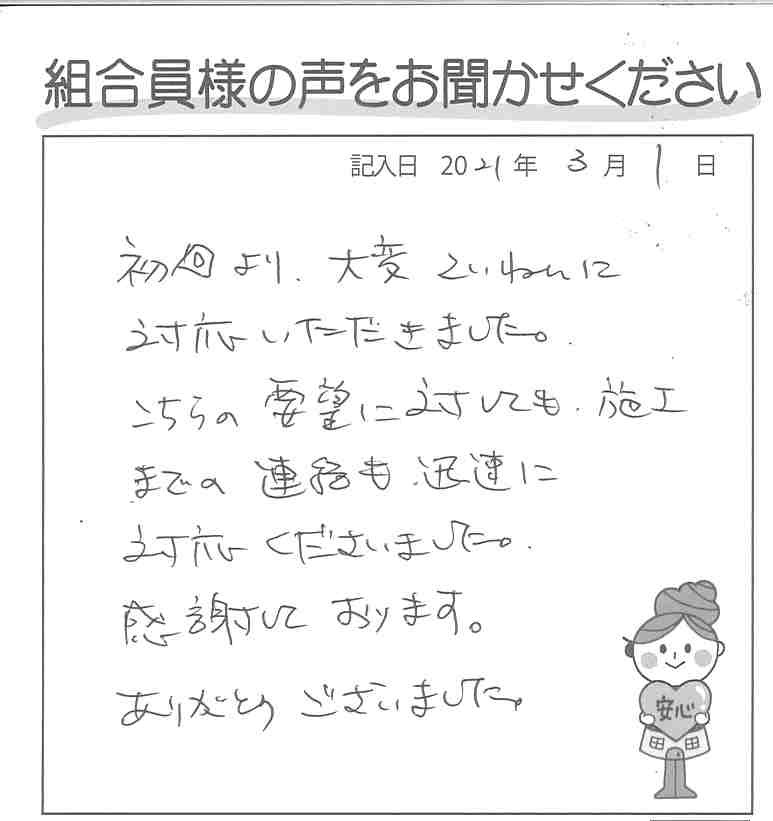 組合員様の声をお聞かせください
記入日 2021年 3月 1日
初回より、大変ていねいに
対応いただきました。
こちらの要望に対しても、施工
までの連絡も、迅速に
対応くださいました。
感謝しております。
ありがとうございました。
安心